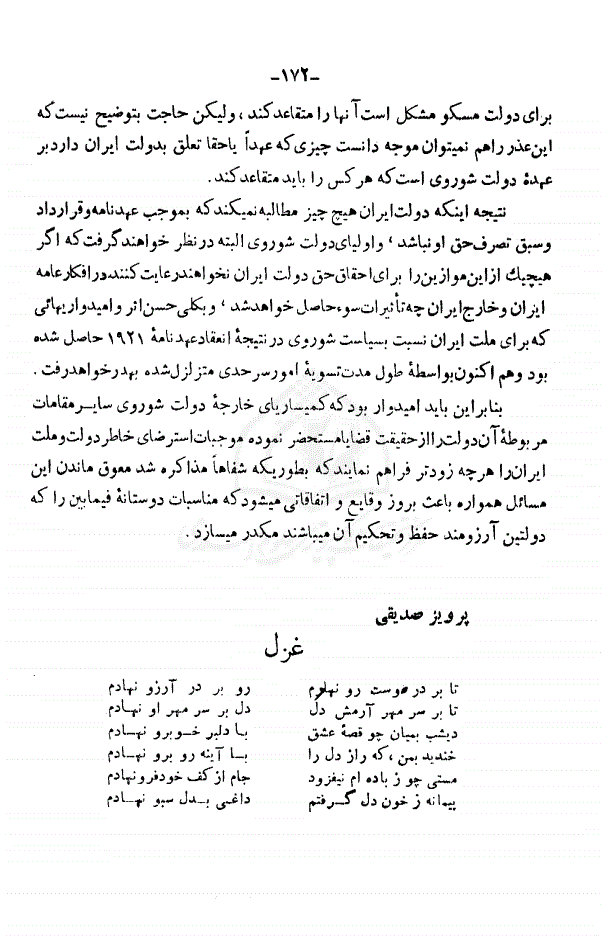 -۱۷۲-
برای دولت مسکو مشکل است آنها را متقاعد کند ، ولیکن حاجت بتوضیح نیست که
این عذر را هم نمیتوان موجه دانست چیزی که عهداً یا حقا تعلق بدولت ایران دارد بر
عهدهٔ دولت شوروی است که هر کس را باید متقاعد کند .
نتیجه اینکه دولت ایران هیچ چیز مطالبه نمیکند که بموجب عهدنامه و قرارداد
و سبق تصرف حق او نباشد ، و اولیای دولت شوروی البته در نظر خواهند گرفت که اگر
هیچیک از این موازین را برای احقاق حق دولت ایران نخواهند رعایت کنند، در افکار عامه
ایران و خارج ایران چه تأثیرات سوء حاصل خواهد شد ، و بکلی حسن اثر و امیدواریهائی
که برای ملت ایران نسبت بسیاست شوروی در نتیجهٔ انعقاد عهدنامهٔ ۱۹۲۱ حاصل شده
بود و هم اکنون بواسطهٔ طول مدت تسویهٔ امور سرحدی متزلزل شده بهدر خواهد رفت .
بنابراین باید امیدوار بود که کمیساریای خارجهٔ دولت شوروی سایر مقامات
مربوطهٔ آن دولت را از حقیقت قضایا مستحضر نموده موجبات استرضای خاطر دولت و ملت
ایران را هر چه زودتر فراهم نمایند که بطوریکه شفاهاً مذاکره شد معوق ماندن این
مسائل همواره باعث بروز وقایع و اتفاقاتی میشود که مناسبات دوستانهٔ فیمابین را که
دولتین آرزومند حفظ و تحکیم آن میباشند مکدر میسازد .
پرویز صدیقی
غزل
تا بر در دوست رو نهادم رو بر در آرزو نهادم
تا بر سر مهر آرمش دل دل بر سر مهر او نهادم
دیشب بمیان چو قصهٔ عشق با دلبر خوبرو نهادم
خندید بمن ، که راز دل را با آینه رو برو نهادم
مستی چو ز باده ام نیفزود جام از کف خود فرو نهادم
پیمانه ز خون دل گرفتم داغی بدل سبو نهادم